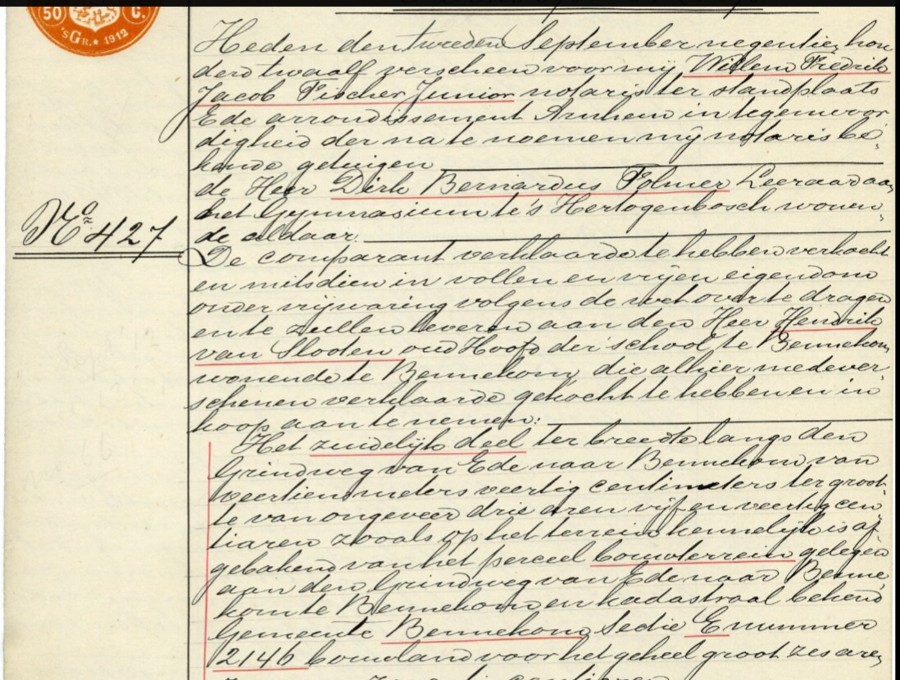 50 C.
'sGR.★ 1912
Heden den tweeden September negentien hon
derd twaalf verscheen voor mij Willem Fredrik
Jacob Fischer Junior notaris ter standplaats
Ede arrondissement Arnhem in tegenwoor
digheid der na te noemen mij notaris be
kende getuigen
de Heer Dirk Bernardus Folmer Leeraar aan
het Gymnasium te 's Hertogenbosch wonen
de aldaar.
No 427
De comparant verklaarde te hebben verkocht
en mitsdien in vollen en vrijen eigendom
onder vrijwaring volgens de wet over te dragen
en te zullen leveren aan den Heer Hendrik
van Slooten oud Hoofd der school te Bennekom,
wonende te Bennekom, die alhier mede ver
schenen verklaarde gekocht te hebben en in
koop aan te nemen:
Het zuidelijk deel ter breedte langs den
Grindweg van Ede naar Bennekom van
veertien meters veertig centimeters ter groot
te van ongeveer drie aren vijf en veertig cen
tiaren zooals op het terrein kennelijk is af
gebakend van het perceel bouwterrein gelegen
aan den Grindweg van Ede naar Benne
kom te Bennekom en kadastraal bekend
Gemeente Bennekom Sectie E nummer
2146 bouwland voor het geheel groot zes aren